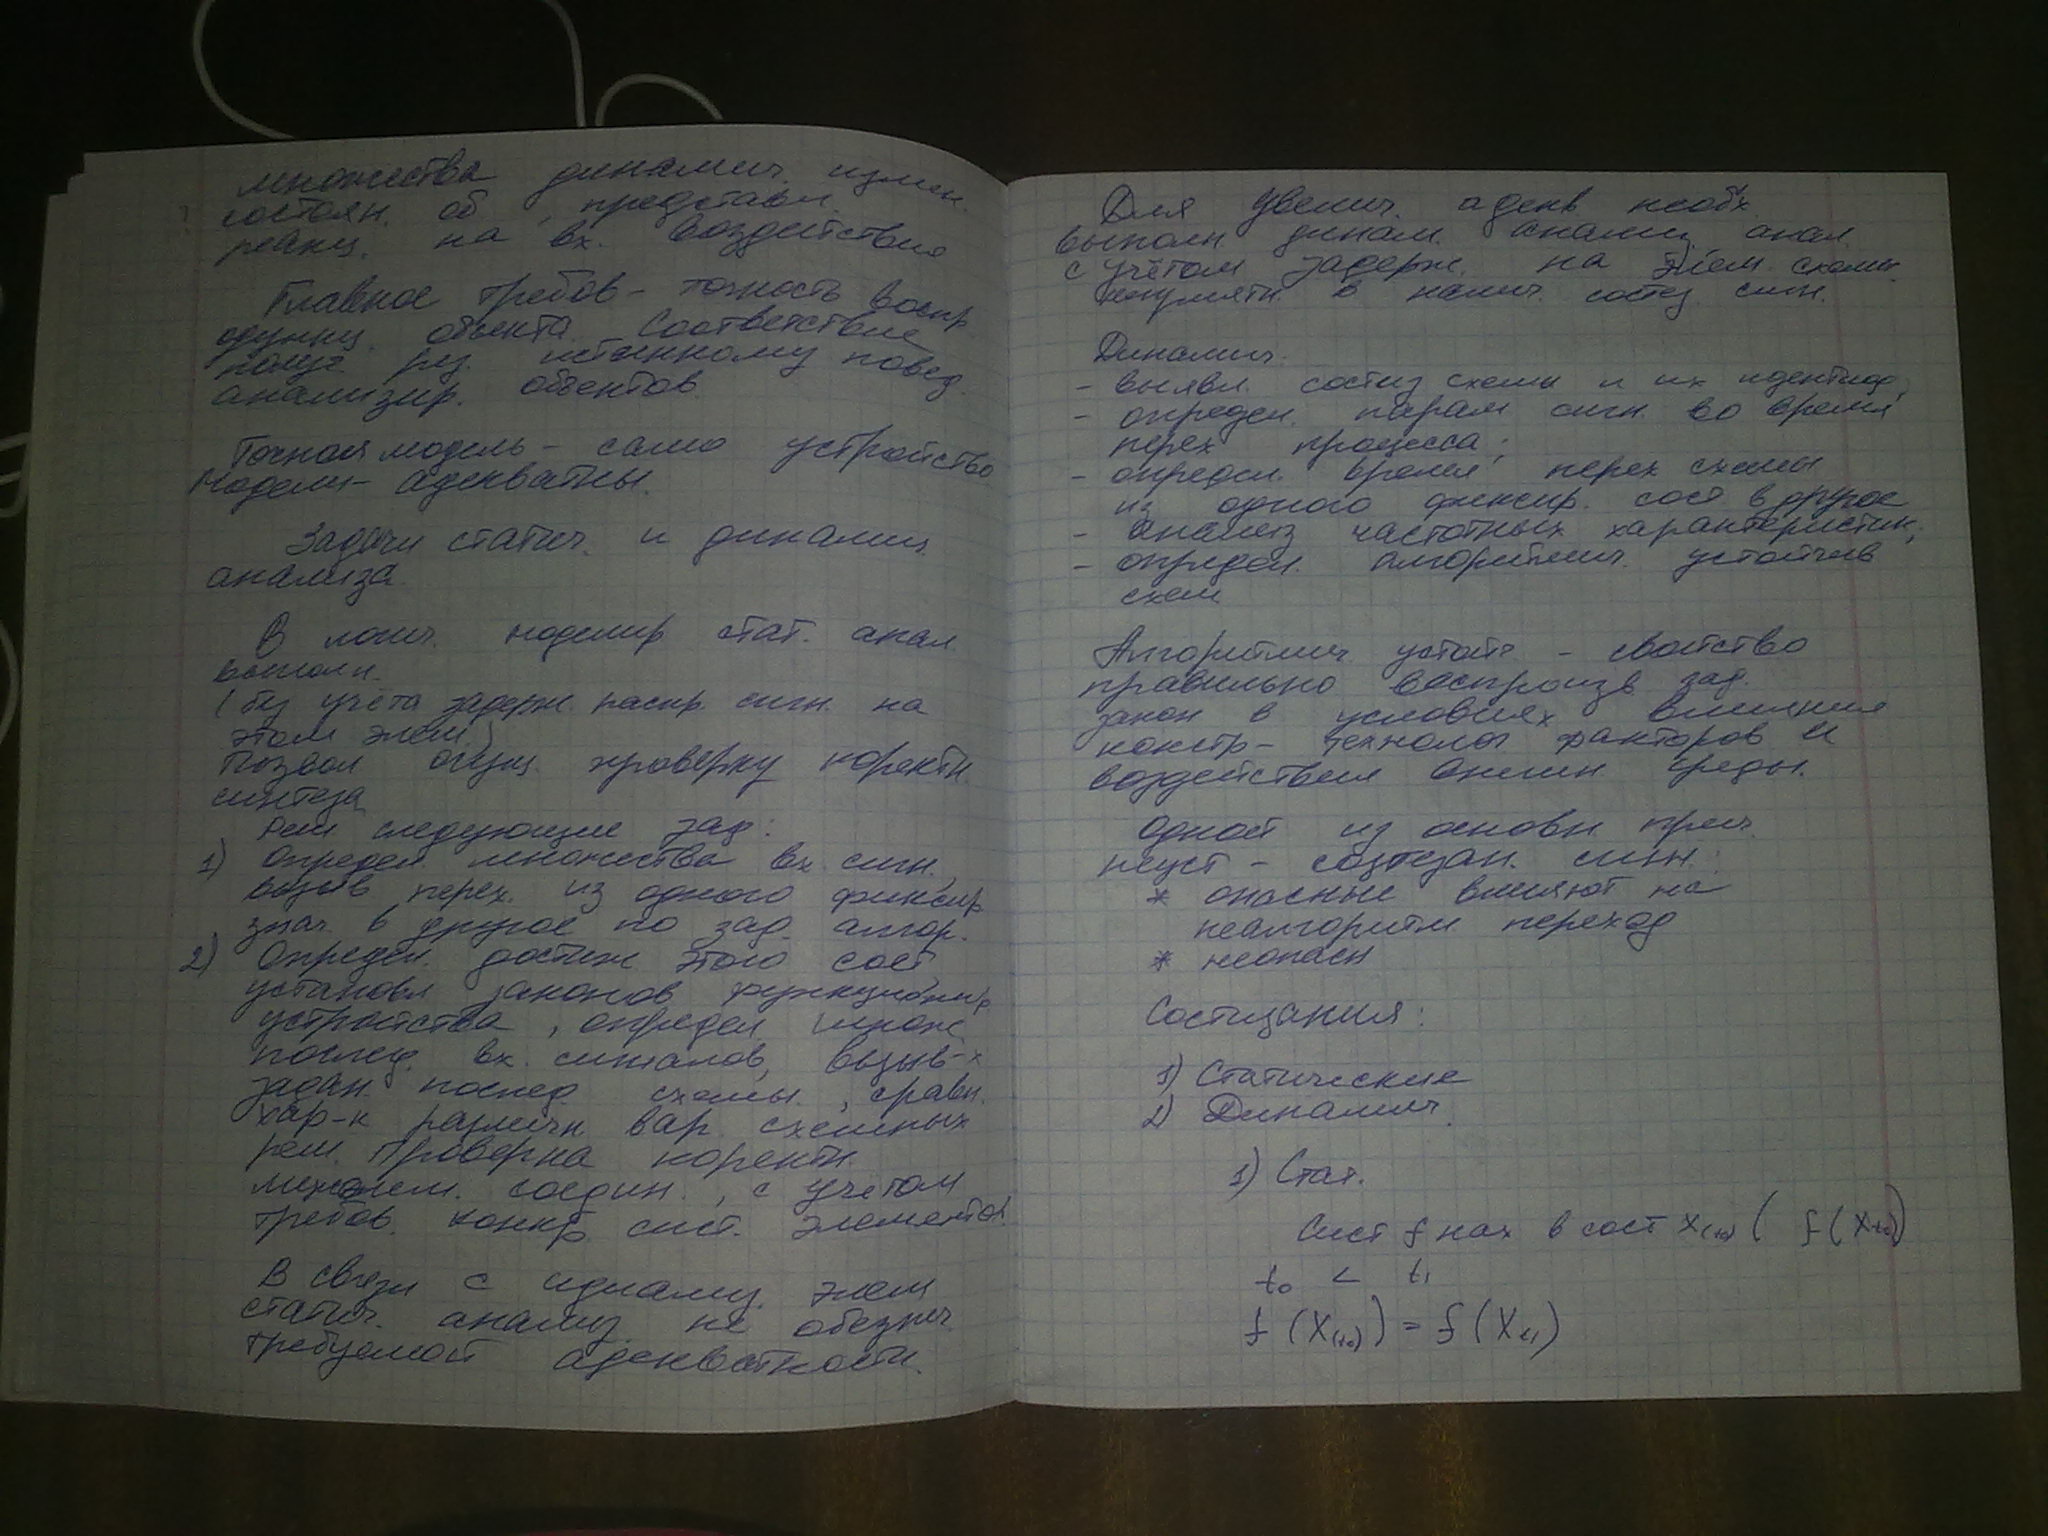 множества динамич. измен.
состоян. об, представл.
реакц. на вх. воздействие
Главное требов - точность воспр
функц. объекта. Соответствие
получ рез. истинному повед.
анализир. объектов.
Точная модель - само устройство
Модели - адекватны.
Задачи статич. и динамич.
анализа.
В логич. моделир стат. анал.
выполн.
(без учёта задерж. распр. сигн. на
этом элем)
Позвол осущ. проверку коректн.
синтеза
Реш следующие зад:
1) Определ. множества вх. сигн.,
вызыв перех. из одного фиксир
знач. в другое по зад. алгор.
2) Определ. достиж этого сост,
установл законов функционир
устройства, определ. множ.
послед. вх. сигналов, вызыв-х
задан. послед схемы, сравн.
хар-к различн. вар. схемных
реш. Проверка коректн.
межэлем. соедин., с учётом
требов. конкр. сист. элементов.
В связи с идеализ. элем
статич. анализ не обезпеч.
требуемост адекватности.
Для увелич. адекв необх.
выполн динам. анализ, анал.
с учётом задерж. на элем. схемы
в налич. состяз. сигн.
Динамич.
- выявл. состяз схемы и их идентиф,
- определ. парам сигн. во время
перех процесса;
- определ. время перех схемы
из одного фиксир. сост в другое
- анализ частотных характеристик;
- определ. алгоритмич. устойчив
схем
Алгоритмич. устойч - свойство
правильно воспроизв зад.
закон в условиях влияния
констр- технолог факторов и
воздействия внешн среды.
Одной из основн прич.
неуст - состязан. сигн.:
* опасные влияют на
неалгоритм переход
* неопасн
Состязания:
1) Статические
2) Динамич.
1) Стат.
Сист f нах в сост X(t0) ( f(Xt0)
t0 < t1
f (X(t0)) = f(Xt1)